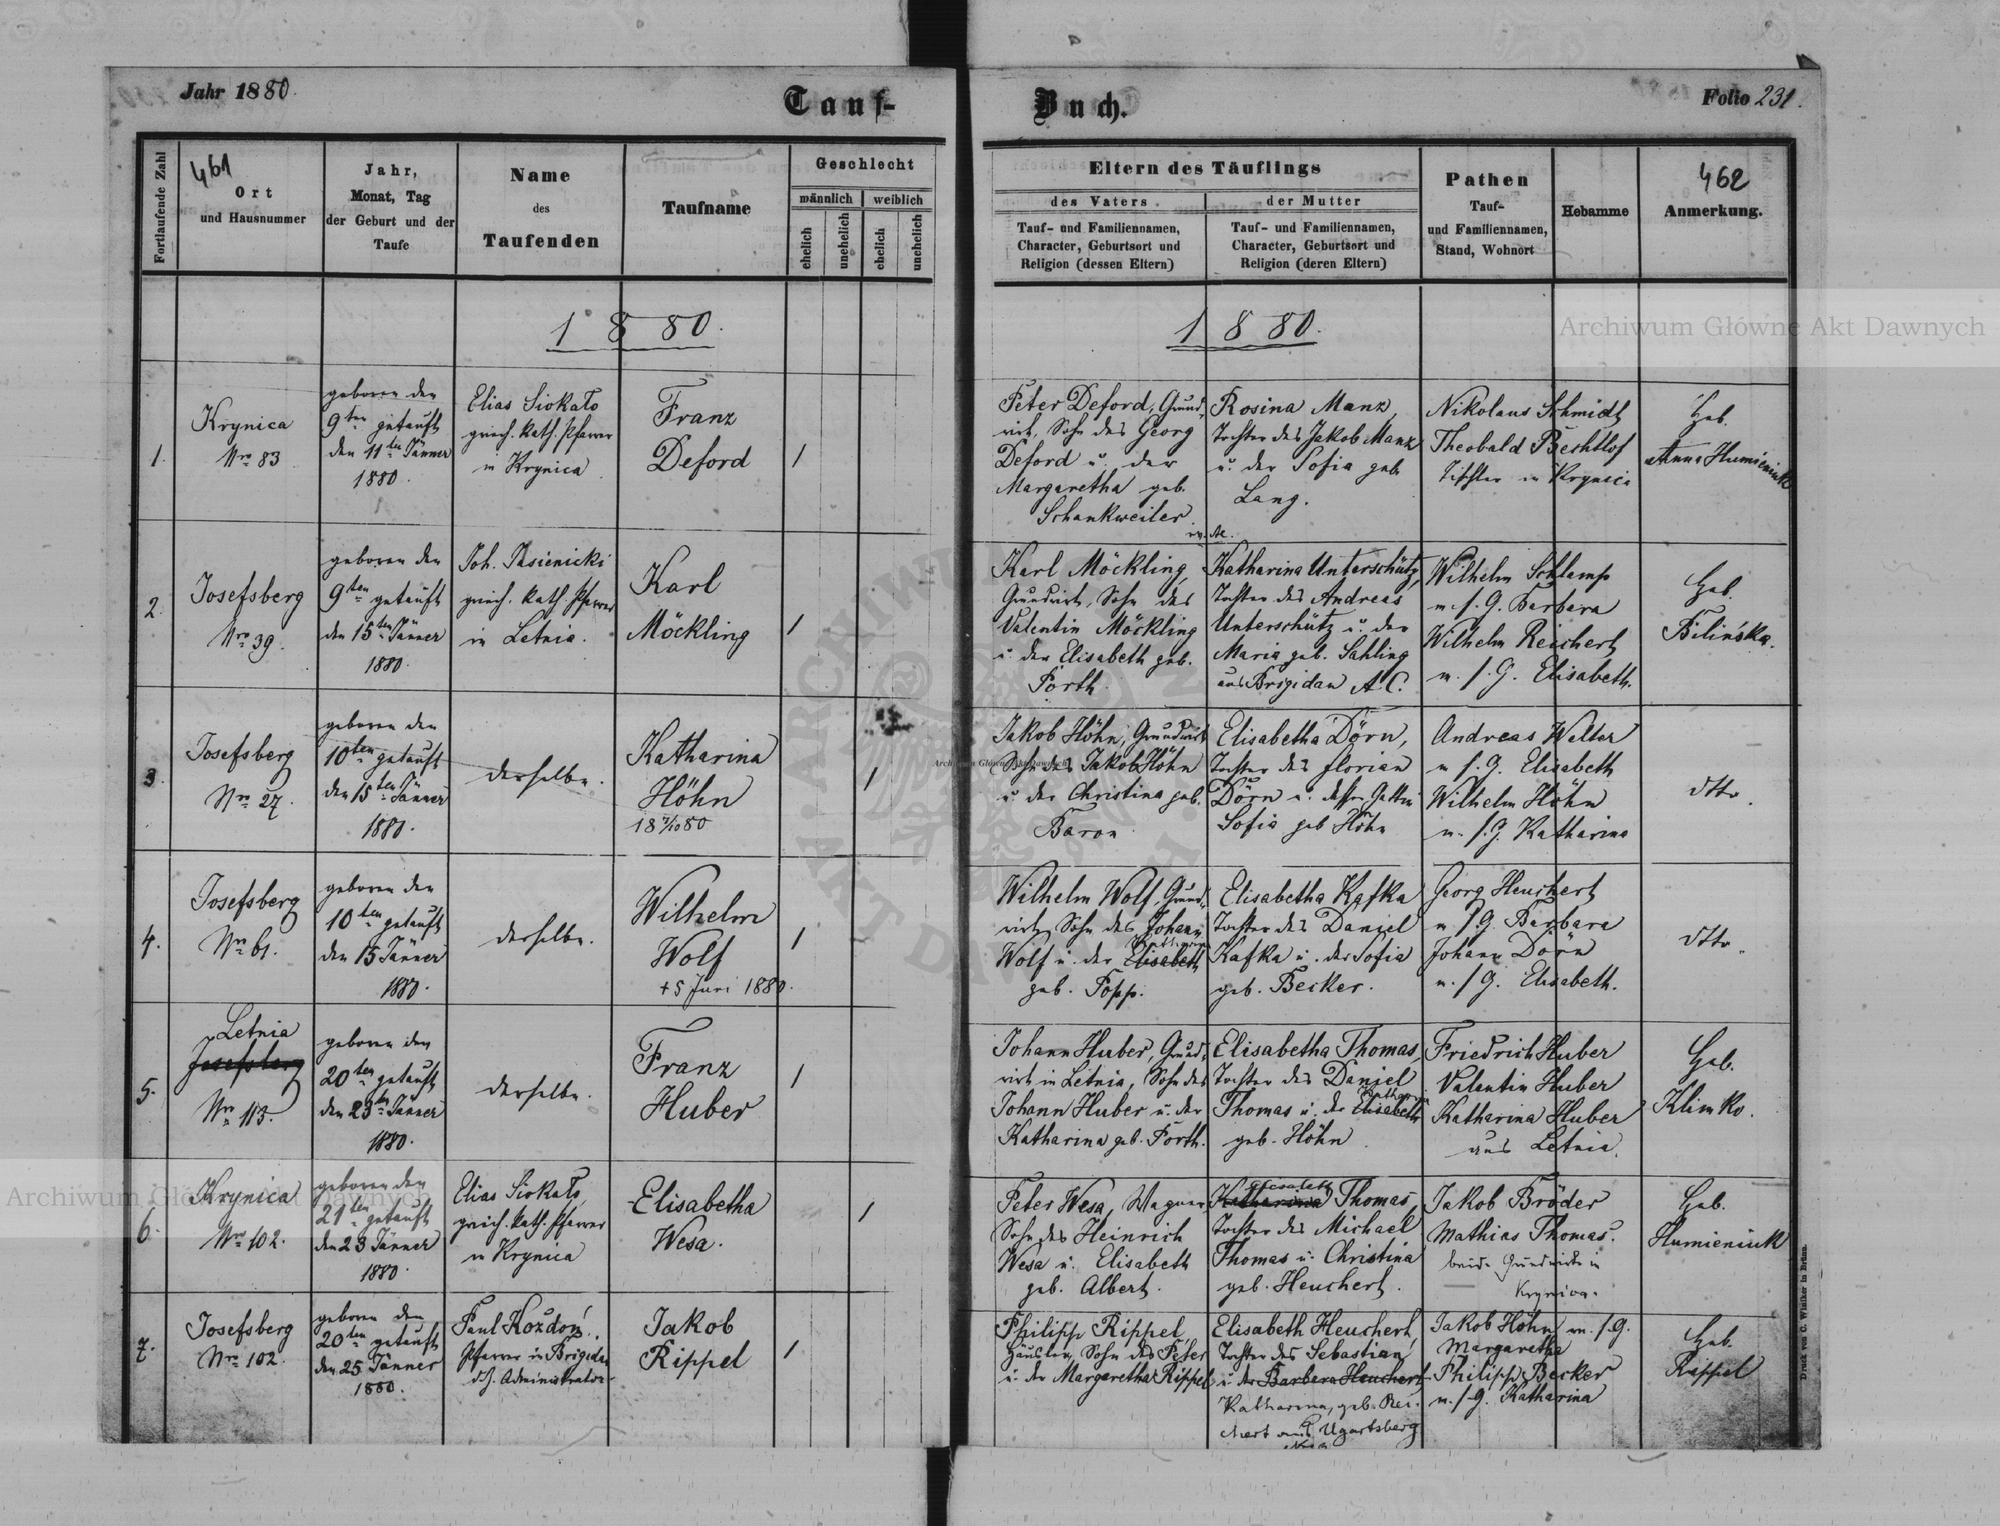 Jahr 1880.
Tauf-
Buch.
Folio 231.
Fortlaufende Zahl
461
Ort
und Hausnummer
Jahr,
Monat, Tag
der Geburt und der
Taufe
Name
des
Taufenden
Taufname
Geschlecht
männlich
weiblich
ehelich
unehelich
ehelich
unehelich
Eltern des Täuflings
des Vaters
der Mutter
Tauf- und Familiennamen,
Character, Geburtsort und
Religion (dessen Eltern)
Tauf- und Familiennamen,
Character, Geburtsort und
Religion (deren Eltern)
Pathen
Tauf-
und Familiennamen,
Stand, Wohnort
Hebamme
462
Anmerkung.
1880.
1880.
1.
Krynica
Nro 83
geboren den
9ten getauft
den 11ten Jänner
1880.
Elias Siokało
griech. kath. Pfarrer
in Krynica
Franz
Deford
1
Peter Deford, Grund-
wirt, Sohn des Georg
Deford u. der
Margaretha geb.
Schankweiler
Rosina Manz,
Tochter des Jakob Manz
u. der Sofia geb.
Lang.
Nikolaus Schmidt
Theobald Bechtlof
Tischler in Krynica
Heb.
Anna Humieniuk
2.
Josefsberg
Nro 39.
geboren den
9ten getauft
den 15ten Jänner
1880.
Joh. Jasienicki
griech. kath. Pfarrer
in Letnia.
Karl
Möckling
1
Karl Möckling,
Grundwirt, Sohn des
Valentin Möckling
u. der Elisabeth geb.
Porth
Katharina Unterschütz,
Tochter des Andreas
Unterschütz u. der
Maria geb. Sahling
aus Brigidau A.C.
Wilhelm Schlamp
m. s. G. Barbara
Wilhelm Reichert
m. s. G. Elisabeth.
Heb.
Bilińska.
3.
Josefsberg
Nro 27.
geboren den
10ten getauft
den 15ten Jänner
1880.
derselbe.
Katharina
Höhn
1
Jakob Höhn, Grundwirt
Sohn des Jakob Höhn
u. der Christina geb.
Baron
Elisabetha Dörn,
Tochter des Florian
Dörn u. dessen Gattin
Sofia geb Höhn
Andreas Welter
m s. G. Elisabeth
Wilhelm Höhn
m. s. G. Katharina
dtto.
4.
Josefsberg
Nro 61.
geboren den
10ten getauft
den 15 Jänner
1880.
derselbe.
Wilhelm
Wolf
+ 5 Juni 1880.
1
Wilhelm Wolf, Grund-
wirt, Sohn des Johann
Wolf u. der Elisabeth
geb. Popp.
Elisabetha Kafka
Tochter des Daniel
Kafka u. der Sofia
geb. Becker.
Georg Heuchert
m s. G. Barbara
Johann Dörn
m. s G. Elisabeth.
dtto.
5.
Letnia
Josefsberg
Nro 113.
geboren den
20ten getauft
den 23ten Jänner
1880.
derselbe.
Franz
Huber
1
Johann Huber, Grund-
wirt in Letnia, Sohn des
Johann Huber u. der
Katharina geb. Porth.
Elisabetha Thomas,
Tochter des Daniel
Thomas u. der Elisabeth
geb. Höhn
Friedrich Huber
Valentin Huber
Katharina Huber
aus Letnia.
Heb.
Klimko.
6.
Krynica
Nro 102.
geboren den
21ten getauft
den 23 Jänner
1880.
Elias Siokało,
griech. kath. Pfarrer
in Krynica
Elisabetha
Wesa.
1
Peter Wesa, Wagner
Sohn des Heinrich
Wesa u. Elisabeth
geb. Albert.
Elisabeth
Katharina Thomas,
Tochter des Michael
Thomas u. Christina
geb. Heuchert.
Jakob Bröder
Mathias Thomas.
beide Grundwirte in
Krynica.
Heb.
Humieniuk
7.
Josefsberg
Nro 102.
geboren den
20ten getauft
den 25 Jänner
1880.
Paul Kozdoń,
Pfarrer in Brigidau
d.h. Administrator
Jakob
Rippel
1
Philipp Rippel,
Häusler, Sohn des Peter
u. der Margaretha Rippel
Elisabeth Heuchert,
Tochter des Sebastian
u. der Barbara Heuchert
Katharina, geb. Rei-
chert aus Ugartsberg
Jakob Höhn m. s. G.
Margaretha
Philipp Becker
m. s. G. Katharina
Heb.
Rippel
Druck von C. Winiker in Brünn.
Archiwum Główne Akt Dawnych
Archiwum Główne Akt Dawnych
Archiwum Główne Akt Dawnych